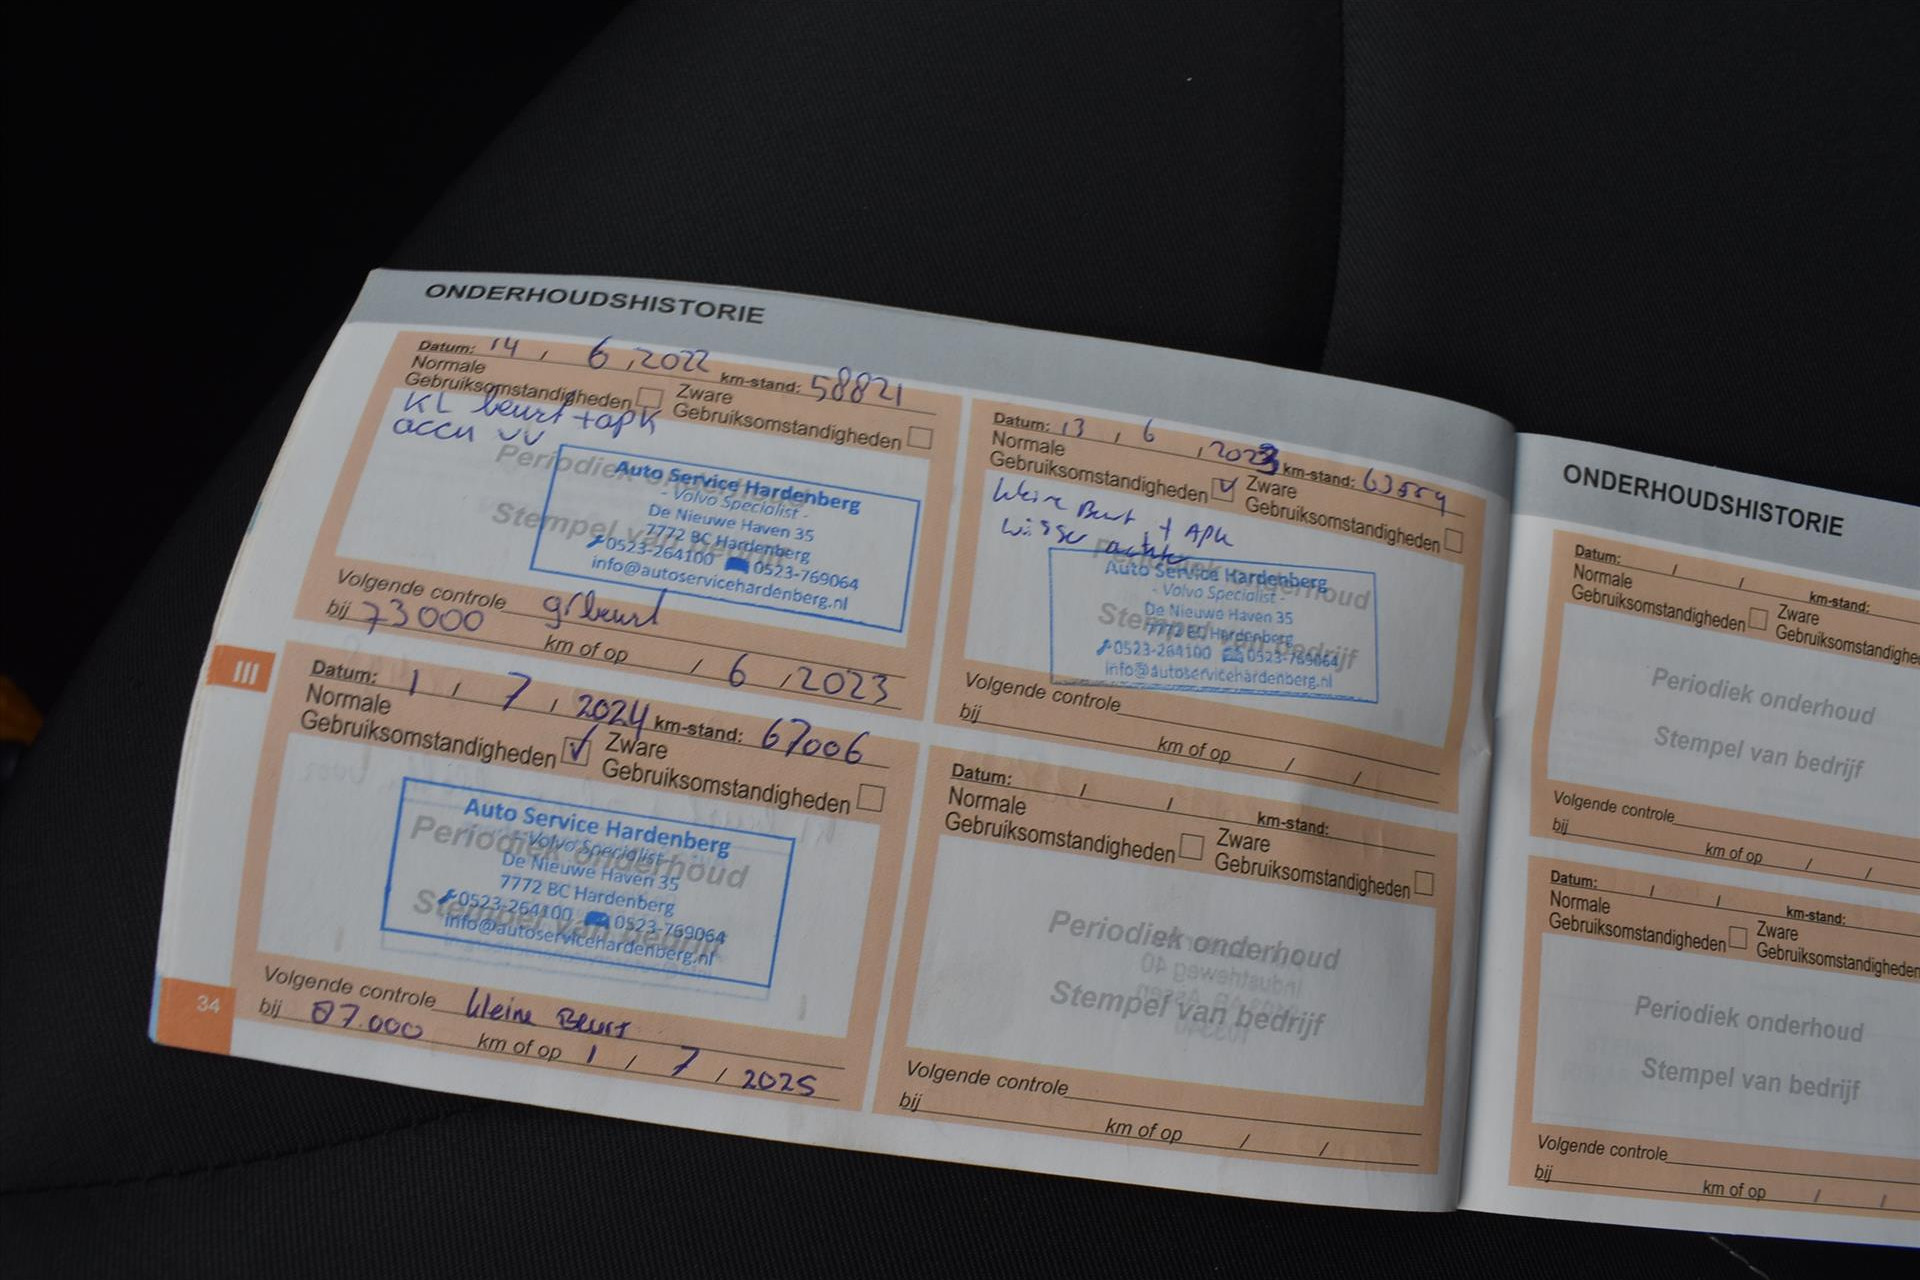 ONDERHOUDSHISTORIE
Datum: 14 / 6 / 2022 km-stand: 58821
Normale
Gebruiksomstandigheden Zware
Gebruiksomstandigheden
KL beurt + apk
accu VV
Periodiek onderhoud
Stempel van bedrijf
Auto Service Hardenberg
- Volvo Specialist -
De Nieuwe Haven 35
7772 BC Hardenberg
0523-264100 0523-769064
info@autoservicehardenberg.nl
Volgende controle gr beurt
bij 73000 km of op / 6 / 2023
Datum: 13 / 6 / 2023 km-stand: 63559
Normale
Gebruiksomstandigheden Zware
Gebruiksomstandigheden
kleine Beurt + APK
wisser achter
Periodiek onderhoud
Stempel van bedrijf
Auto Service Hardenberg
- Volvo Specialist -
De Nieuwe Haven 35
7772 BC Hardenberg
0523-264100 0523-769064
info@autoservicehardenberg.nl
Volgende controle
bij km of op / /
III
Datum: 1 / 7 / 2024 km-stand: 67006
Normale
Gebruiksomstandigheden Zware
Gebruiksomstandigheden
Periodiek onderhoud
Stempel van bedrijf
Auto Service Hardenberg
- Volvo Specialist -
De Nieuwe Haven 35
7772 BC Hardenberg
0523-264100 0523-769064
info@autoservicehardenberg.nl
Volgende controle kleine Beurt
bij 87.000 km of op 1 / 7 / 2025
34
Datum: / / km-stand:
Normale
Gebruiksomstandigheden Zware
Gebruiksomstandigheden
Periodiek onderhoud
Stempel van bedrijf
Volgende controle
bij km of op / /
ONDERHOUDSHISTORIE
Datum: / / km-stand:
Normale
Gebruiksomstandigheden Zware
Gebruiksomstandighede
Periodiek onderhoud
Stempel van bedrijf
Volgende controle
bij km of op / /
Datum: / / km-stand:
Normale
Gebruiksomstandigheden Zware
Gebruiksomstandigheden
Periodiek onderhoud
Stempel van bedrijf
Volgende controle
bij km of op / /